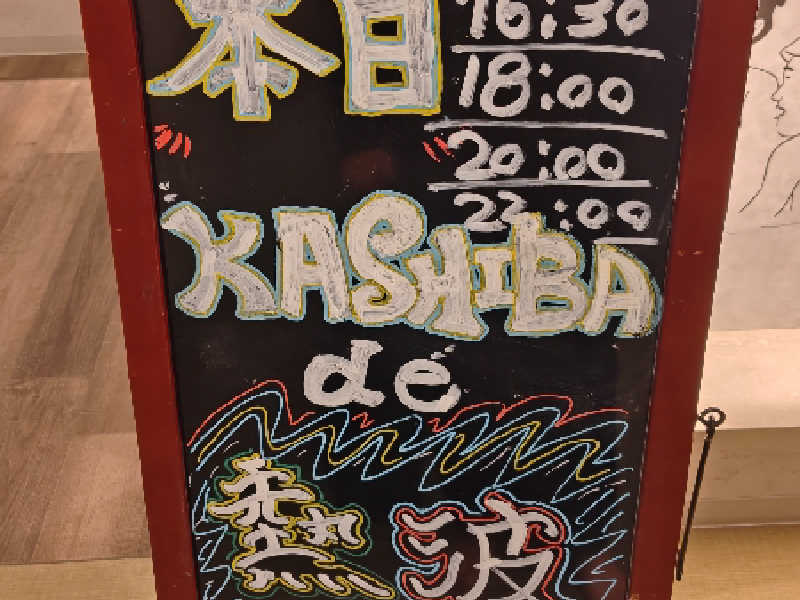 本日
16:30
18:00
20:00
22:00
KASHIBA
de
熱波